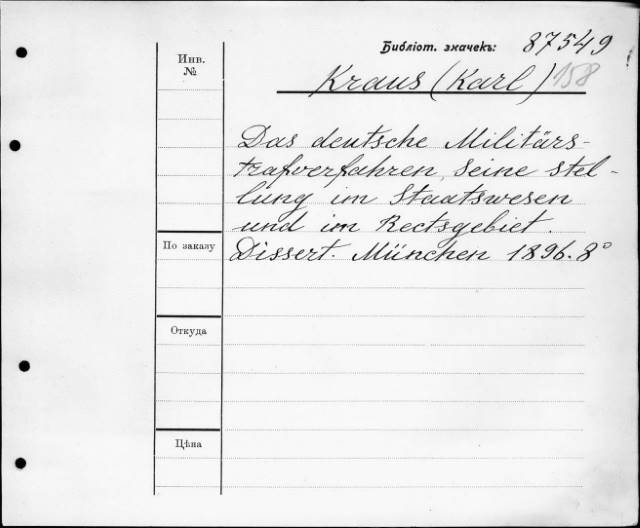 Библіот. значекъ: 87549
Инв.
№
Kraus (Karl) 158
Das deutsche Militärs-
trafverfahren, seine stel-
lung im Staatswesen
und im Rectsgebiet.
По заказу
Dissert. München 1896. 8°
Откуда
Цѣна